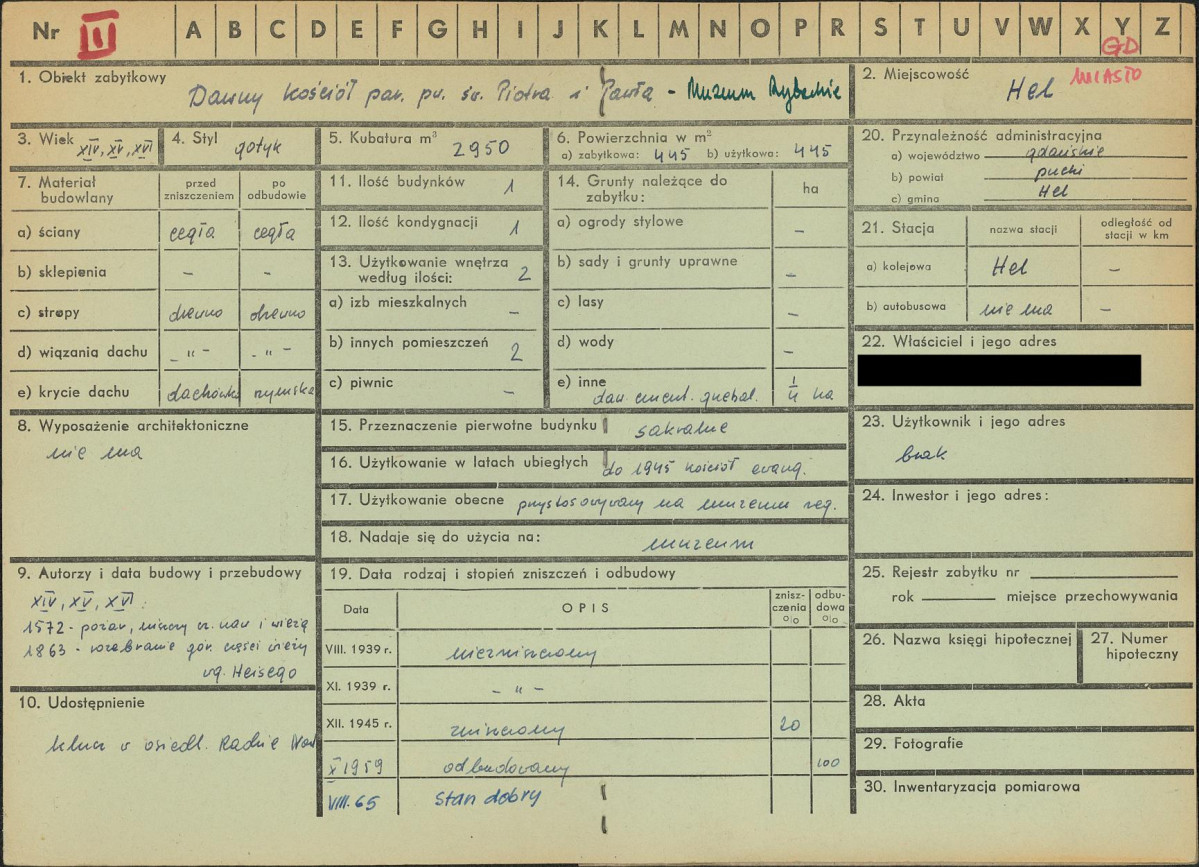 Nr III A B C D E F G H I J K L M N O P R S T U V W X Y Z
GD
MIASTO
1. Obiekt zabytkowy
Dawny kościół par. pw. św. Piotra i Pawła - Muzeum Rybackie
2. Miejscowość
Hel
3. Wiek XIV, XV, XVI
4. Styl gotyk
5. Kubatura m³ 2950
6. Powierzchnia w m²
a) zabytkowa: 445 b) użytkowa: 445
20. Przynależność administracyjna
a) województwo gdańskie
b) powiat pucki
c) gmina Hel
7. Materiał budowlany
przed zniszczeniem
po odbudowie
a) ściany cegła cegła
b) sklepienia - -
c) stropy drewno drewno
d) wiązania dachu - " - - " -
e) krycie dachu dachówka rzymska
11. Ilość budynków 1
12. Ilość kondygnacji 1
13. Użytkowanie wnętrza
według ilości: 2
a) izb mieszkalnych -
b) innych pomieszczeń 2
c) piwnic -
14. Grunty należące do
zabytku:
ha
a) ogrody stylowe -
b) sady i grunty uprawne -
c) lasy -
d) wody -
e) inne
daw. cment. grzebal. 1/4 ha
21. Stacja
nazwa stacji
odległość od
stacji w km
a) kolejowa Hel -
b) autobusowa nie ma -
22. Właściciel i jego adres
8. Wyposażenie architektoniczne
nie ma
15. Przeznaczenie pierwotne budynku sakralne
16. Użytkowanie w latach ubiegłych do 1945 kościół ewang.
17. Użytkowanie obecne przystosowywany na muzeum reg.
18. Nadaje się do użycia na: muzeum
23. Użytkownik i jego adres
brak
24. Inwestor i jego adres:
9. Autorzy i data budowy i przebudowy
XIV, XV, XVI.
1572 - pożar, niszczy cz. naw i wieżę
1863 - rozebranie gór. części wieży
wg. Heisego
10. Udostępnienie
klucz w osiedl. Radzie Nar
19. Data rodzaj i stopień zniszczeń i odbudowy
Data
OPIS
znisz-
czenia
%
odbu-
dowa
%
VIII. 1939 r. niezniszczony
XI. 1939 r. - " -
XII. 1945 r. zniszczony 20
X 1959 odbudowany 100
VIII. 65 stan dobry
25. Rejestr zabytku nr
rok miejsce przechowywania
26. Nazwa księgi hipotecznej
27. Numer
hipoteczny
28. Akta
29. Fotografie
30. Inwentaryzacja pomiarowa